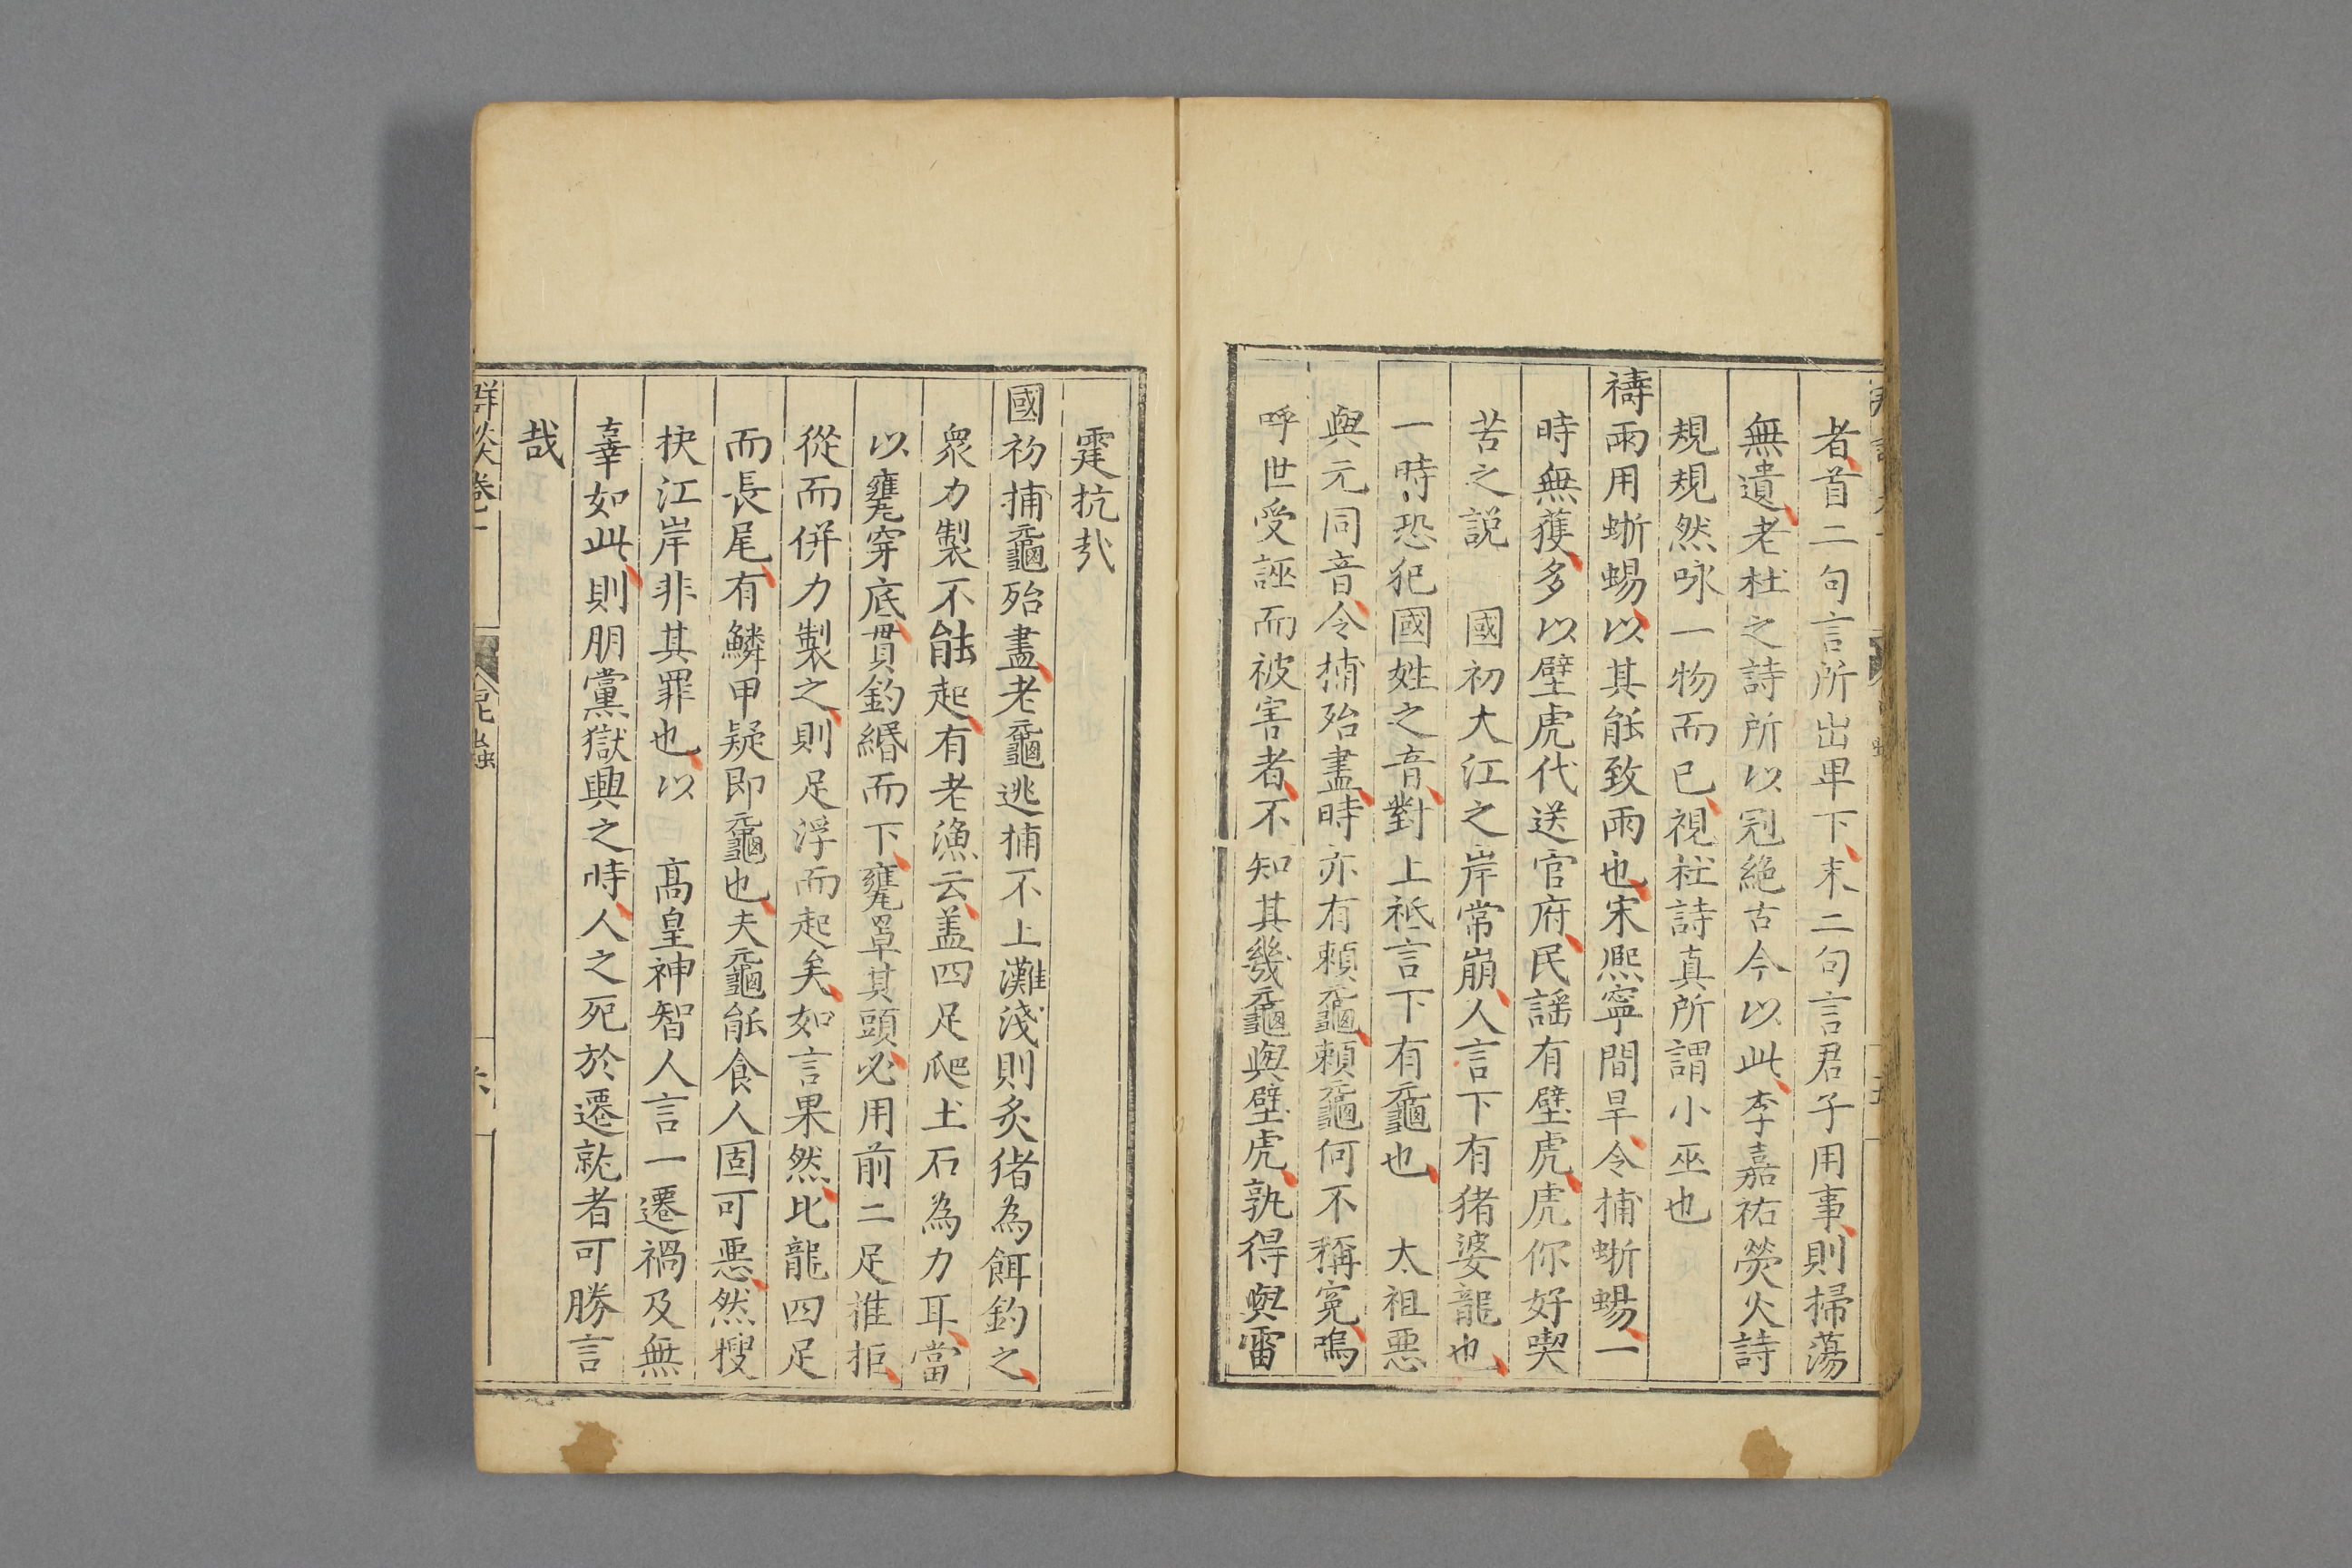 者首二句言所出卑下末二句言君子用事則掃蕩
無遺老杜之詩所以冠絕古今以此李嘉祐熒火詩
規規然咏一物而已視杜詩真所謂小巫也
禱雨用蜥蜴以其能致雨也宋熈寧間旱令捕蜥蜴一
時無獲多以壁虎代送官府民謡有壁虎虎你好喫
苦之說　國初大江之岸常崩人言下有猪婆龍也
一時恐犯國姓之音對上祗言下有黿也　太祖惡
與元同音令捕殆盡時亦有頼黿頼黿何不稱寃嗚
呼世受誣而被害者不知其幾黿與壁虎孰得與雷
霆抗㢤
國初捕黿殆盡老黿逃捕不上灘淺則炙猪為餌釣之
衆力製不能起有老漁云盖四足爬土石為力耳當
以甕穿底貫釣緡而下甕罩其頭必用前二足推拒
從而併力製之則足浮而起矣如言果然比龍四足
而長尾有鱗甲疑即黿也夫黿能食人固可惡然搜
抉江岸非其罪也以　髙皇神智人言一遷禍及無
辜如此則朋黨獄興之時人之死於遷就者可勝言
哉
群談卷十
昆蟲
六